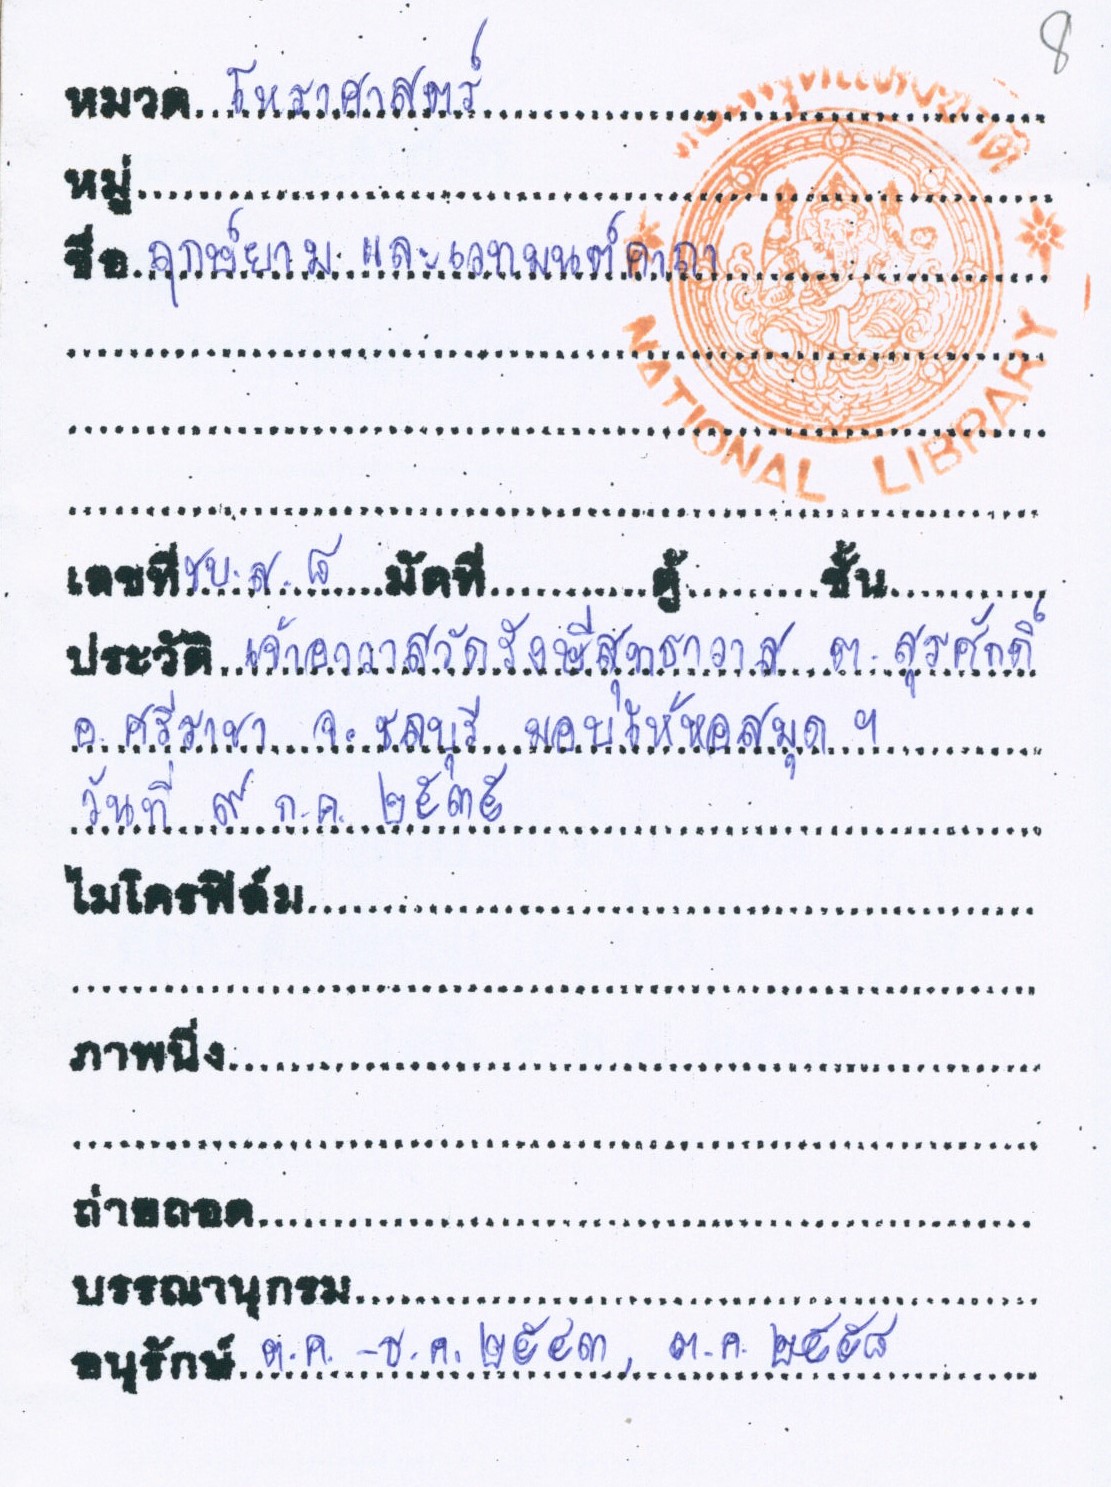 8
หมวด โหราศาสตร์
หมู่
ชื่อ ฤกษ์ยาม และเวทมนต์คาถา
NATIONAL LIBRARY
เลขที่ ชบ.ส. ๘ มัดที่ ตู้ ชั้น
ประวัติ เจ้าอาวาสวัดรังษีสุทธาวาส ต. สุรศักดิ์
อ. ศรีราชา จ. ชลบุรี มอบให้หอสมุด ฯ
วันที่ ๙ ก.ค. ๒๕๓๕
ไมโครฟิล์ม
ภาพนิ่ง
ถ่ายถอด
บรรณานุกรม
อนุรักษ์ ต.ค. - ธ.ค. ๒๕๔๓, ต.ค. ๒๕๕๘